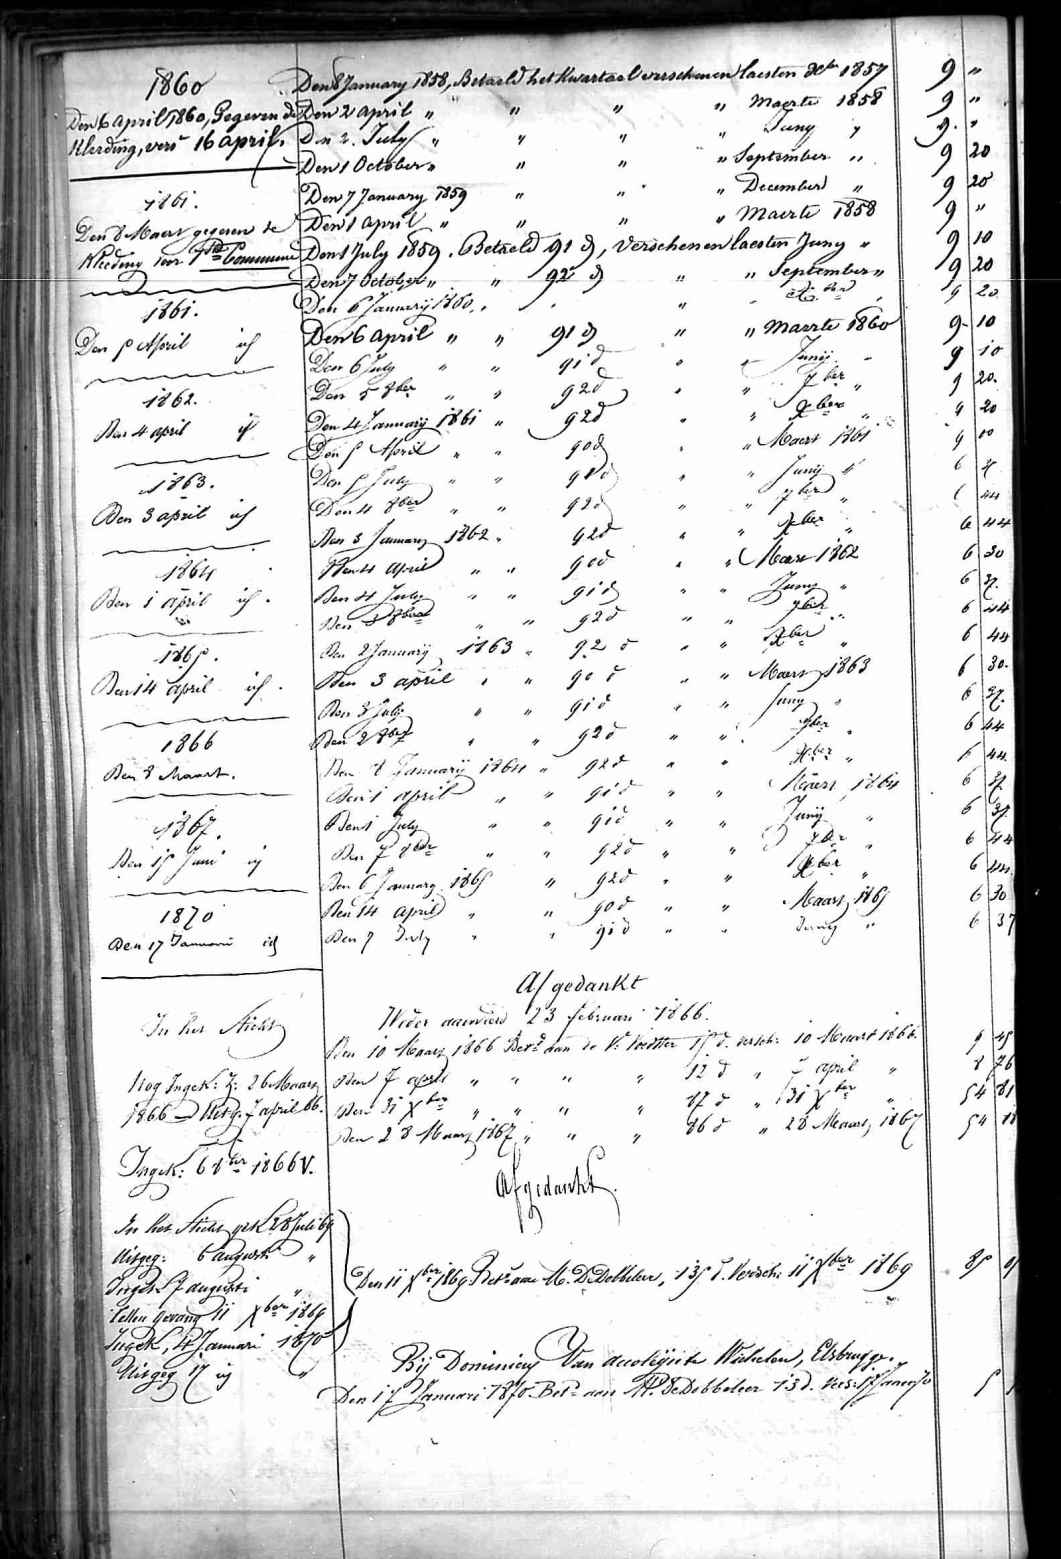 1860
Den 6 April 1860, Gegeven de
Kleeding, vers 16 april.
1861.
Den 8 Maert gegeven de
Kleeding voor 1ste Commune
1861.
Den 5 April id
1862.
Den 4 april id
1863.
Den 3 april id
1864
Den 1 april id.
1865.
Den 14 april id.
1866
Den 8 Maart.
1867.
Den 15 Juni id
1870
Den 17 Januarii id
In het Sticht
Nog Ingek: 26 Maars
1866 7 april 66.
Ingek: 6 8ber 1866 V.
In het Sticht 28 Juli 69
Uitgeg: 6 augusti "
Ingek 7 augusti "
11 Xber 1869
Ingek, 4 Januari 1870
Uitgeg 17 id "
Den 8 January 1858, Betaeld het Kwartael verschenen laesten Xbr 1857 9 "
Den 2 april " " " " Maerte 1858 9 "
Den 2 July " " " " Juny " 9 "
Den 1 October " " " " September " 9 20
Den 7 January 1859 " " " December " 9 20
Den 1 april " " " " Maerte 1858 9 "
Den 1 July 1859. Betaeld 91 d, verschenen laesten Juny " 9 10
Den 7 October " " 92 d " " September " 9 20
Den 6 Januarij 1860, " " " " Xber " 9 20
Den 6 April " " 91 d " " Maerte 1860 9 10
Den 6 July " " 91 d " " Junij " 9 10
Den 5 8ber " " 92 d " " 7ber " 9 20
Den 4 Januarij 1861 " 92 d " " Xber " 9 20
Den 5 April " " 90 d " " Maert 1861 9 00
Den 5 July " " 91 d " " Junij " 6 37
Den 4 8ber " " 92 d " " 7ber " 6 44
Den 3 January 1862 " 92 d " " Xber " 6 44
Den 4 april " " 90 d " " Maers 1862 6 30
Den 4 July " " 91 d " " Juny " 6 37
Den 3 8ber " " 92 d " " 7ber " 6 44
Den 2 Januarij 1863 " 92 d " " Xber " 6 44
Den 3 april " " 90 d " " Maers 1863 6 30
Den 3 July " " 91 d " " Juny " 6 37
Den 2 8ber " " 92 d " " 7ber " 6 44
Den 8 Januarij 1864 " 92 d " " Xber " 6 44
Den 1 april " " 91 d " " Maers 1864 6 37
Den 1 July " " 91 d " " Junij " 6 37
Den 7 8ber " " 92 d " " 7ber " 6 44
Den 6 January 1865 " 92 d " " Xber " 6 44
Den 14 april " " 90 d " " Maars 1865 6 30
Den 7 July " " 91 d " " Juny " 6 37
Afgedankt
Weder aanvierd 23 februari 1866.
Den 10 Maars 1866 Betd aan de Vr 15 d. versch: 10 Maart 1866. 9 45
Den 7 april " " " " 12 d " 7 april " 8 76
Den 31 Xber " " " " 87 d " 31 Xber " 54 81
Den 28 Maars 1867 " " " 86 d " 28 Maars 1867 54 18
Afgedankt.
Den 11 Xber 1869 Betd aan M. DeDobbeleer, 135 d. Versch: 11 Xber 1869 85
Bij Dominicus Van Wichelen, Elsbrugge.
Den 17 Januari 1870. Betd aan M. DeDobbeleer 13 d. vers: 17 5